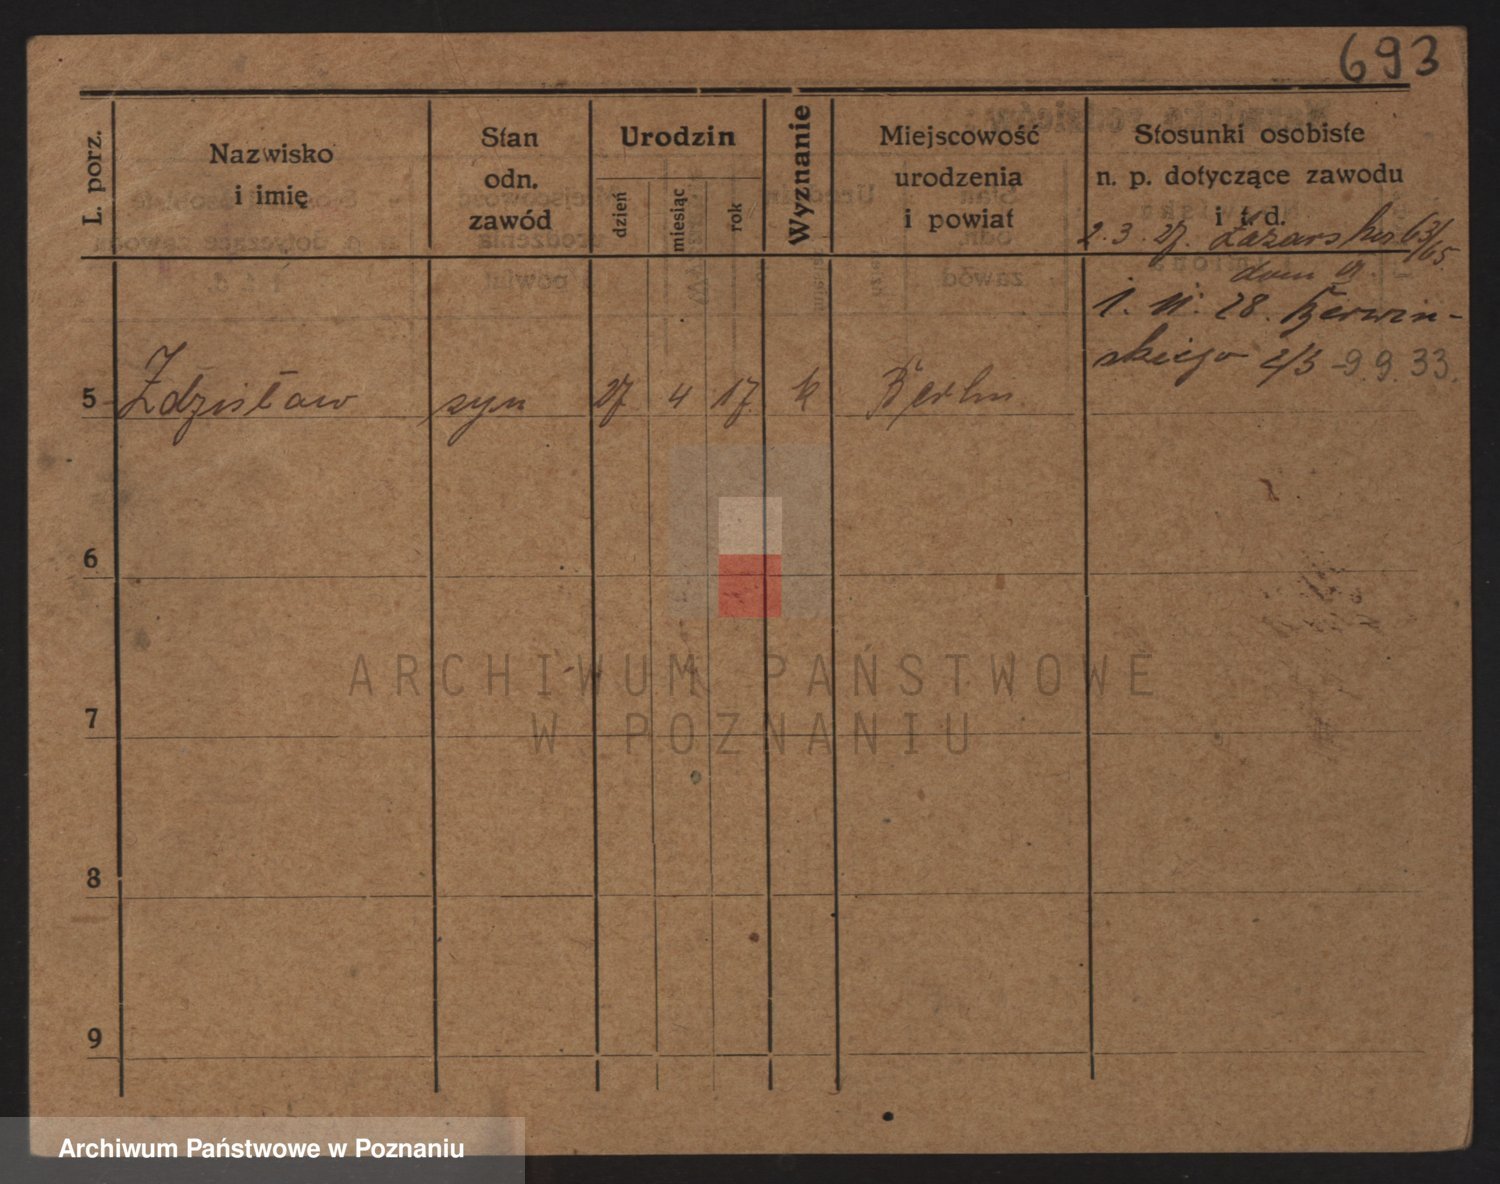 693
L. porz.
Nazwisko
i imię
Stan
odn.
zawód
Urodzin
dzień
miesiąc
rok
Wyznanie
Miejscowość
urodzenia
i powiat
Stosunki osobiste
n. p. dotyczące zawodu
i t. d.
2. 3. 27. Łazarska 63/65
dom
1. 11. 28. Berwiń-
skiego 2/3 - 9 9. 33.
5 Zdzisław syn 27 4 17 k Berlin
6
7
8
9
ARCHIWUM PAŃSTWOWE
W POZNANIU
Archiwum Państwowe w Poznaniu